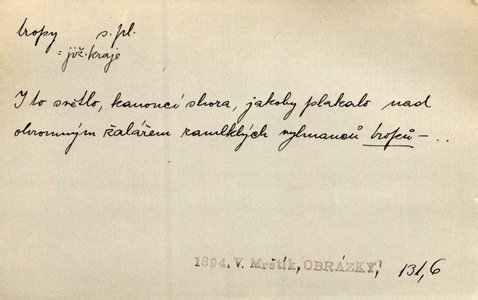 tropy s. pl.
= již. kraje
I to světlo, kanoucí shora, jakoby plakalo nad
ohromným žalářem zamlklých vyhnanců tropů – . .
1894, V. Mrštík, OBRÁZKY, 131,6